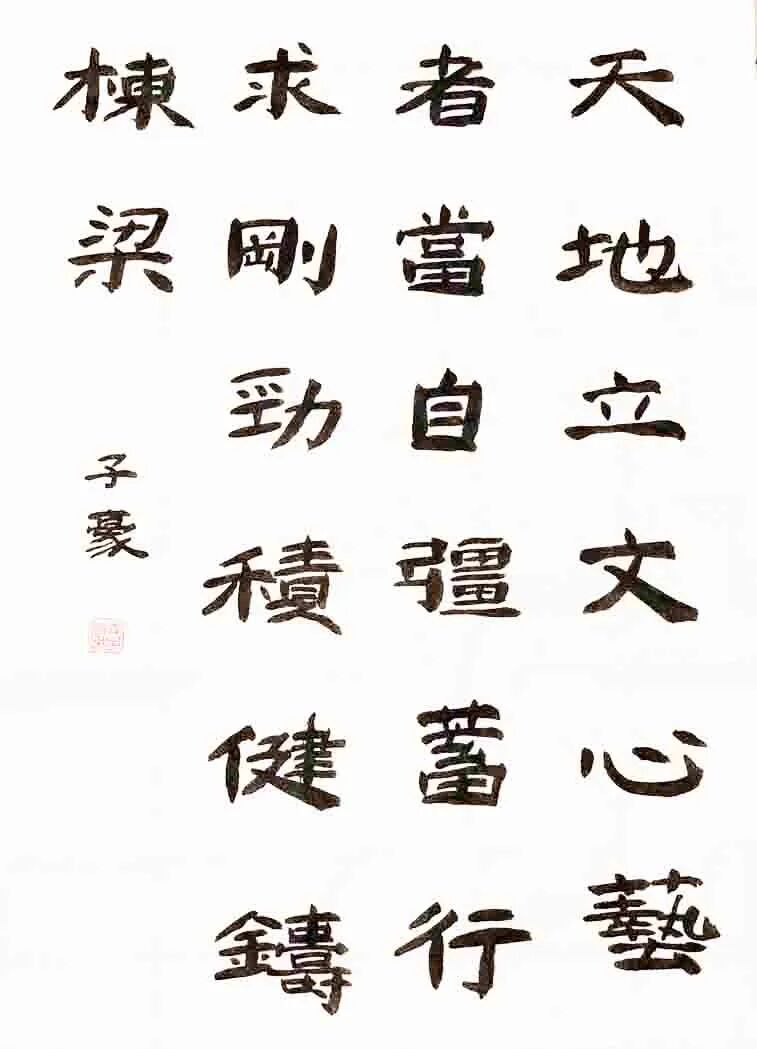 天地立文心藝
者當自彊蓄行
求剛勁積健鑄
棟梁
子豪